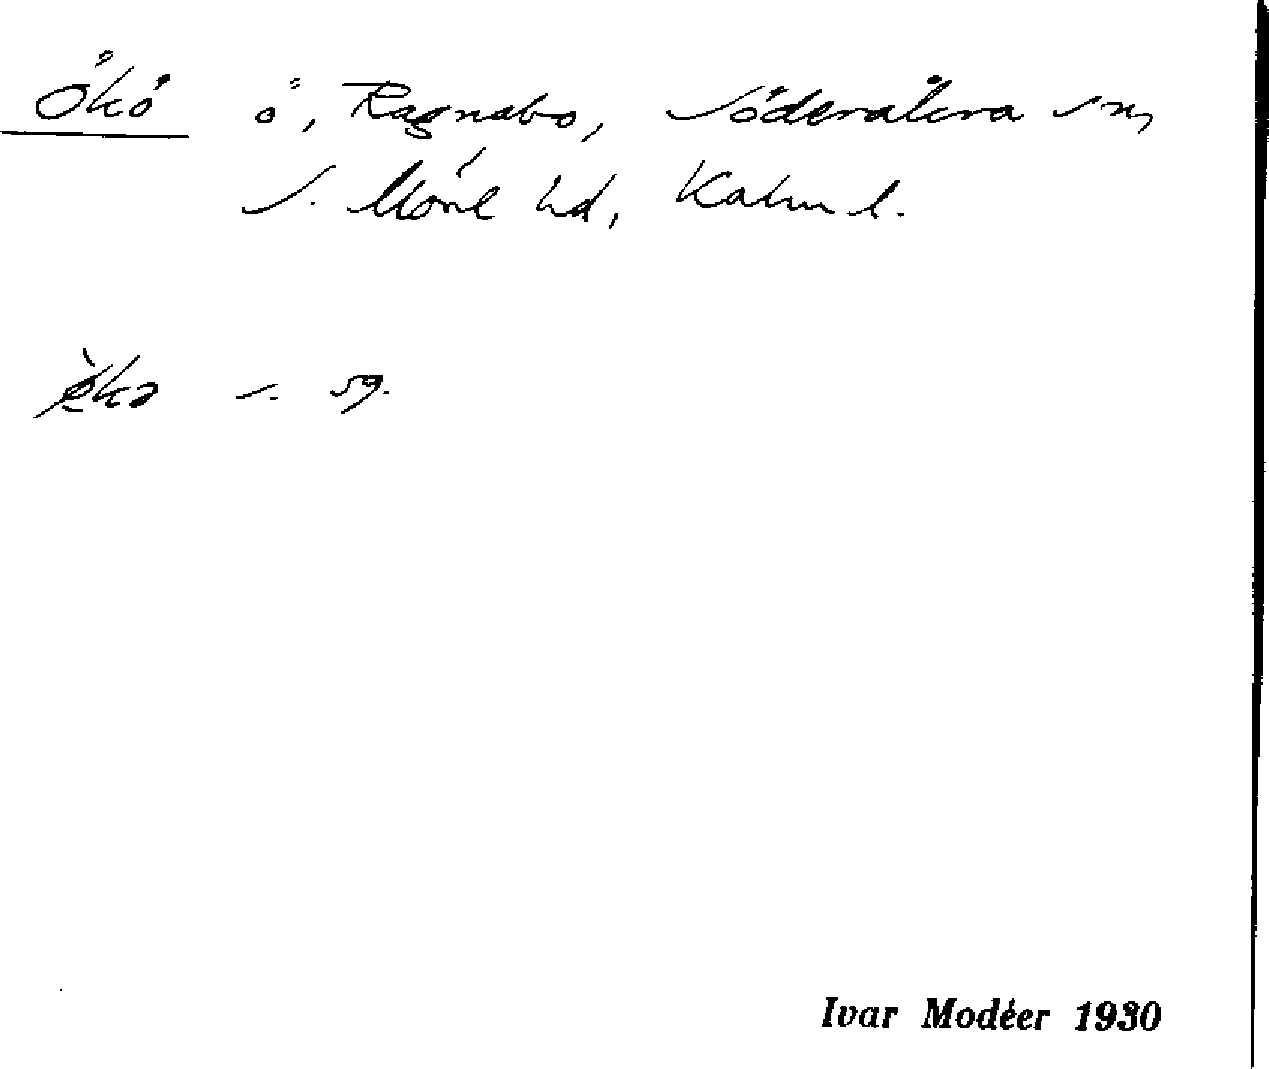 Ökö ö, Ragnabo, Söderåkra sn,
S. Möre hd, Kalm l.
s. 59.
Ivar Modéer 1930